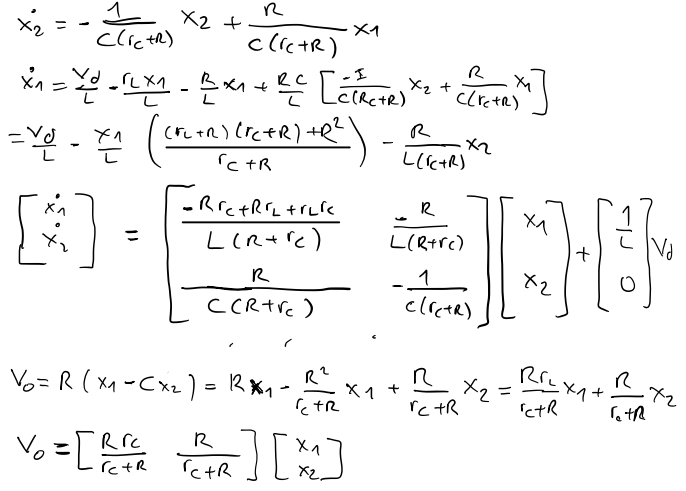 ẋ2 = - 1/(C(rc+R)) x2 + R/(C(rc+R)) x1
ẋ1 = Vd/L - rLx1/L - R/L x1 + RC/L [ -I/(C(Rc+R)) x2 + R/(C(rc+R)) x1 ]
= Vd/L - x1/L ( ((rL+R)(rc+R)+R²)/(rc+R) ) - R/(L(rc+R)) x2
[ẋ1; ẋ2] = [ (-Rrc+RrL+rLrc)/(L(R+rc)) , -R/(L(R+rc)) ; R/(C(R+rc)) , -1/(C(rc+R)) ] [x1; x2] + [1/L; 0] Vd
Vo = R(x1-Cx2) = Rx1 - R²/(rc+R) x1 + R/(rc+R) x2 = RrL/(rc+R) x1 + R/(rc+R) x2
Vo = [ Rrc/(rc+R) R/(rc+R) ] [x1; x2]